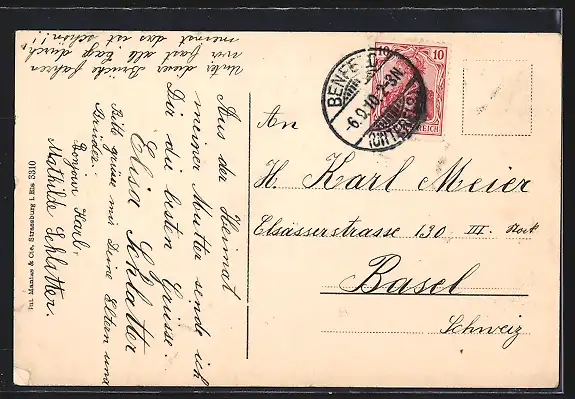 Unter dieser Brücke fahren
wir fast alle Tag durch,
meinst das ist schön!!
Aus der Heimat
meiner Mutter sende ich
Dir die besten Grüsse.
Elisa Schlatter
Bitt grüsse mir Deine Eltern und
Brüder.
Bonjour Karl,
Mathilde Schlatter.
Int. Mantes & Cie. Strassburg i. Els 3310
BENFELD
-6.9.10.2-3N.
(UNTERELS.)
10
10
REICH
An
H. Karl Meier
Elsässerstrasse 130 III. Stock
Basel
Schweiz